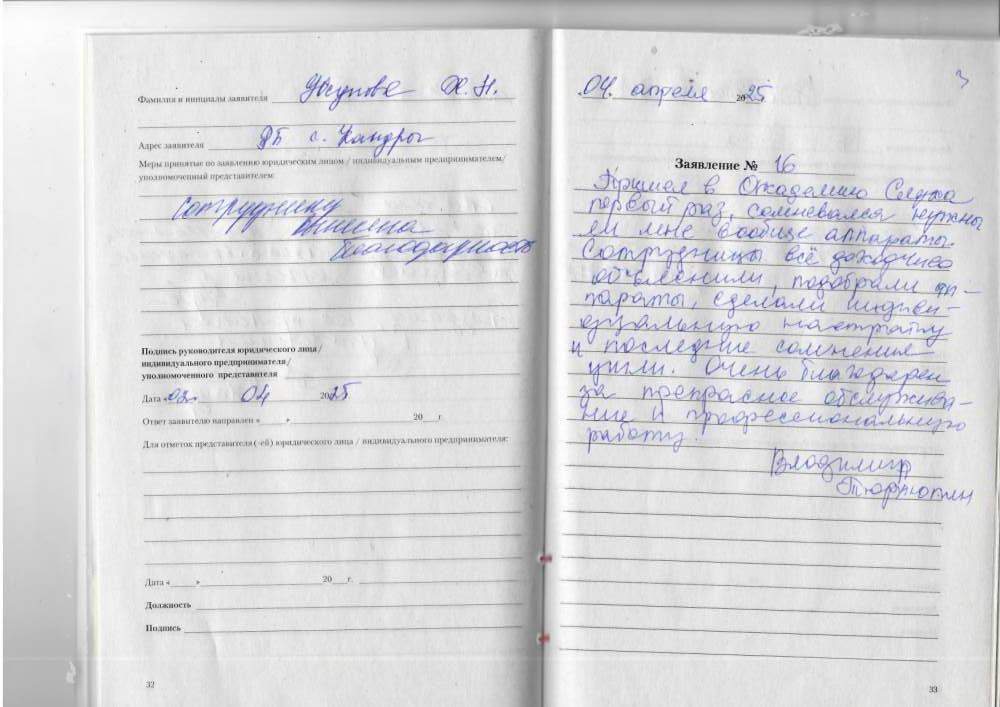 Фамилия и инициалы заявителя Юсупова Х.Н.
Адрес заявителя РБ с. Кандры
Меры принятые по заявлению юридическим лицом / индивидуальным предпринимателем/
уполномоченный представителем:
Сотруднику
вынесена
благодарность
Подпись руководителя юридического лица/
индивидуального предпринимателя/
уполномоченного представителя
Дата «02» 04 2025
Ответ заявителю направлен «____»____20___г.
Для отметок представителя (-ей) юридического лица / индивидуального предпринимателя:
Дата «____»____20___г.
Должность
Подпись
32
3
04. апреля 2025
Заявление № 16
Пришел в Академию Слуха
первый раз, сомневался нужны
ли мне вообще аппараты.
Сотрудницы всё доходчиво
объяснили, подобрали ап-
параты, сделали индиви-
дуальную настройку
и последние сомнения
ушли. Очень благодарен
за прекрасное обслужива-
ние и профессиональную
работу.
Владимир
33